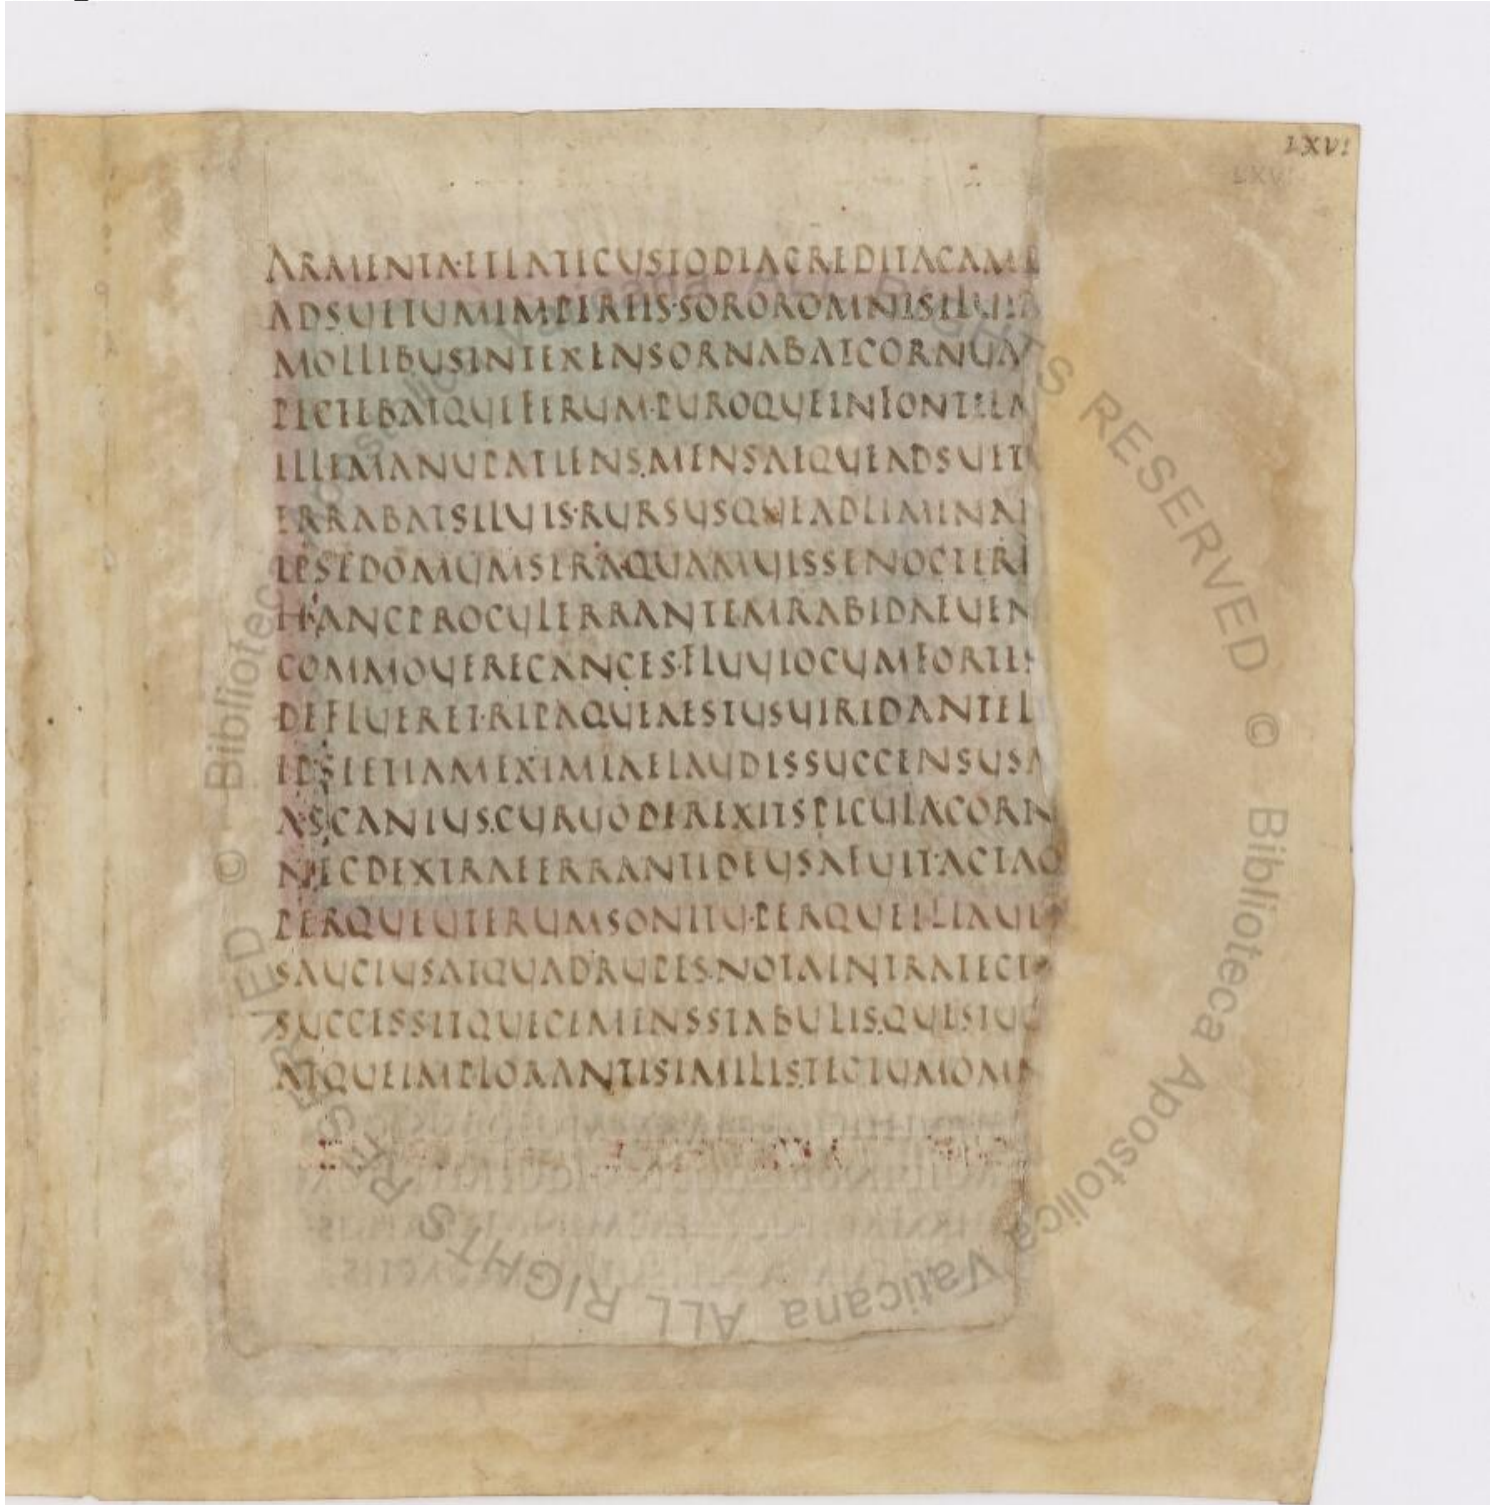 LXVI
ARMENTA·ETLATICUSTODIACREDITACAMP
ADSUETUMIMPERIIS·SOROROMNISILUIA
MOLLIBUSINTEXENSORNABATCORNUA
PECTEBATQUEFERUM·PUROQUEINFONTELA
ILLEMANUPATIENS·MENSAEQUEADSUETU
ERRABATSILUIS·RURSUSQUEADLIMINA
IPSEDOMUMSERAQUAMUISSENOCTEFE
HANCPROCULERRANTEMRABIDAEUEN
COMMOUERECANCES·FLUUIOCUMFORTES
DEFLUERET·RIPAQUEAESTUSUIRIDANTEL
IPSEETIAMEXIMIAELAUDISSUCCENSUSA
ASCANIUS·CURUODEREXITSPICULACORN
NECDEXTRAEERRANTIDEUSAFUIT·ACTAQ
PERQUEUTERUMSONITU·PERQUEILIAUE
SAUCIUSATQUADRUPES·NOTAINTRATECT
SUCCESSITQUEGEMENSSTABULIS·QUESTUQ
ATQUEIMPLORANTISIMILISTECTUMOMN
© Biblioteca Apostolica Vaticana ALL RIGHTS RESERVED © Biblioteca Apostolica Vaticana ALL RIGHTS RESERVED